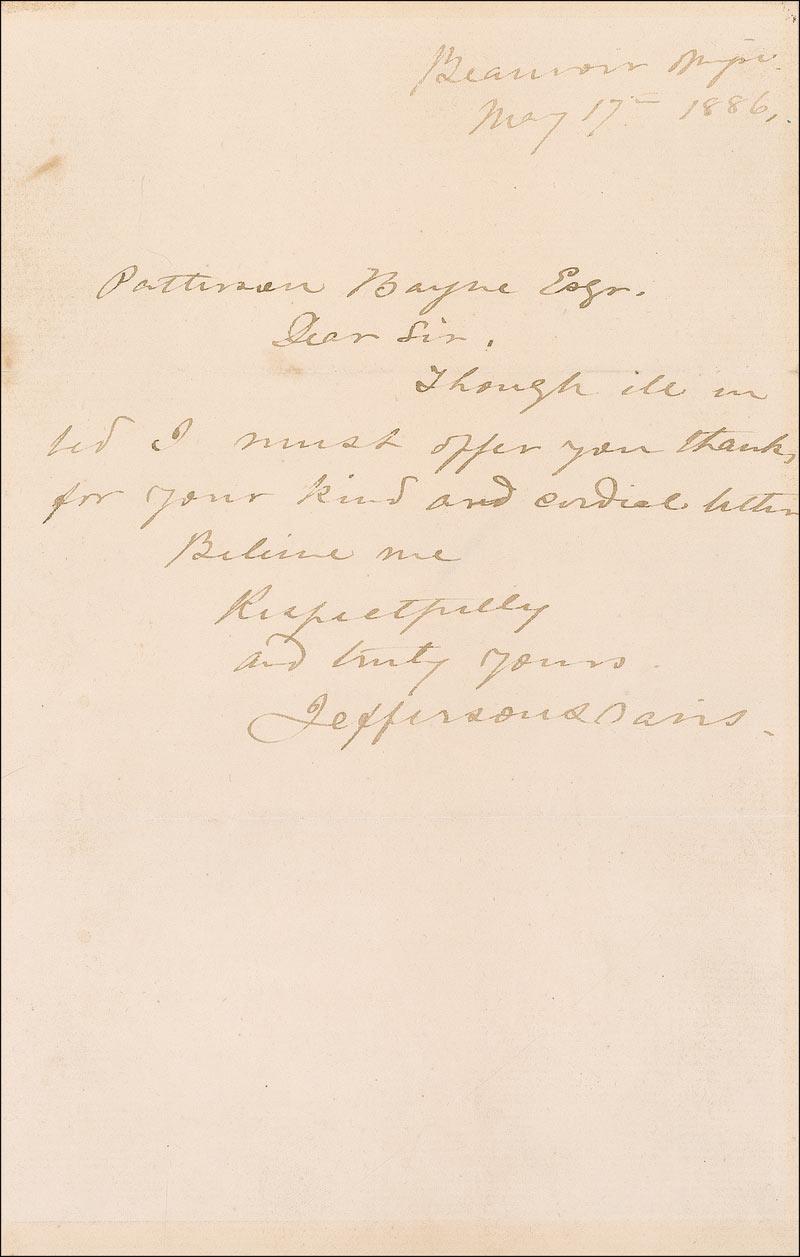 Beauvoir Missi.
May 17th 1886,
Patterson Bayne Esqr.
Dear Sir.
Though ill in
bed I must offer you thanks
for your kind and cordial letter
Believe me
Respectfully
and truly yours
Jefferson Davis.